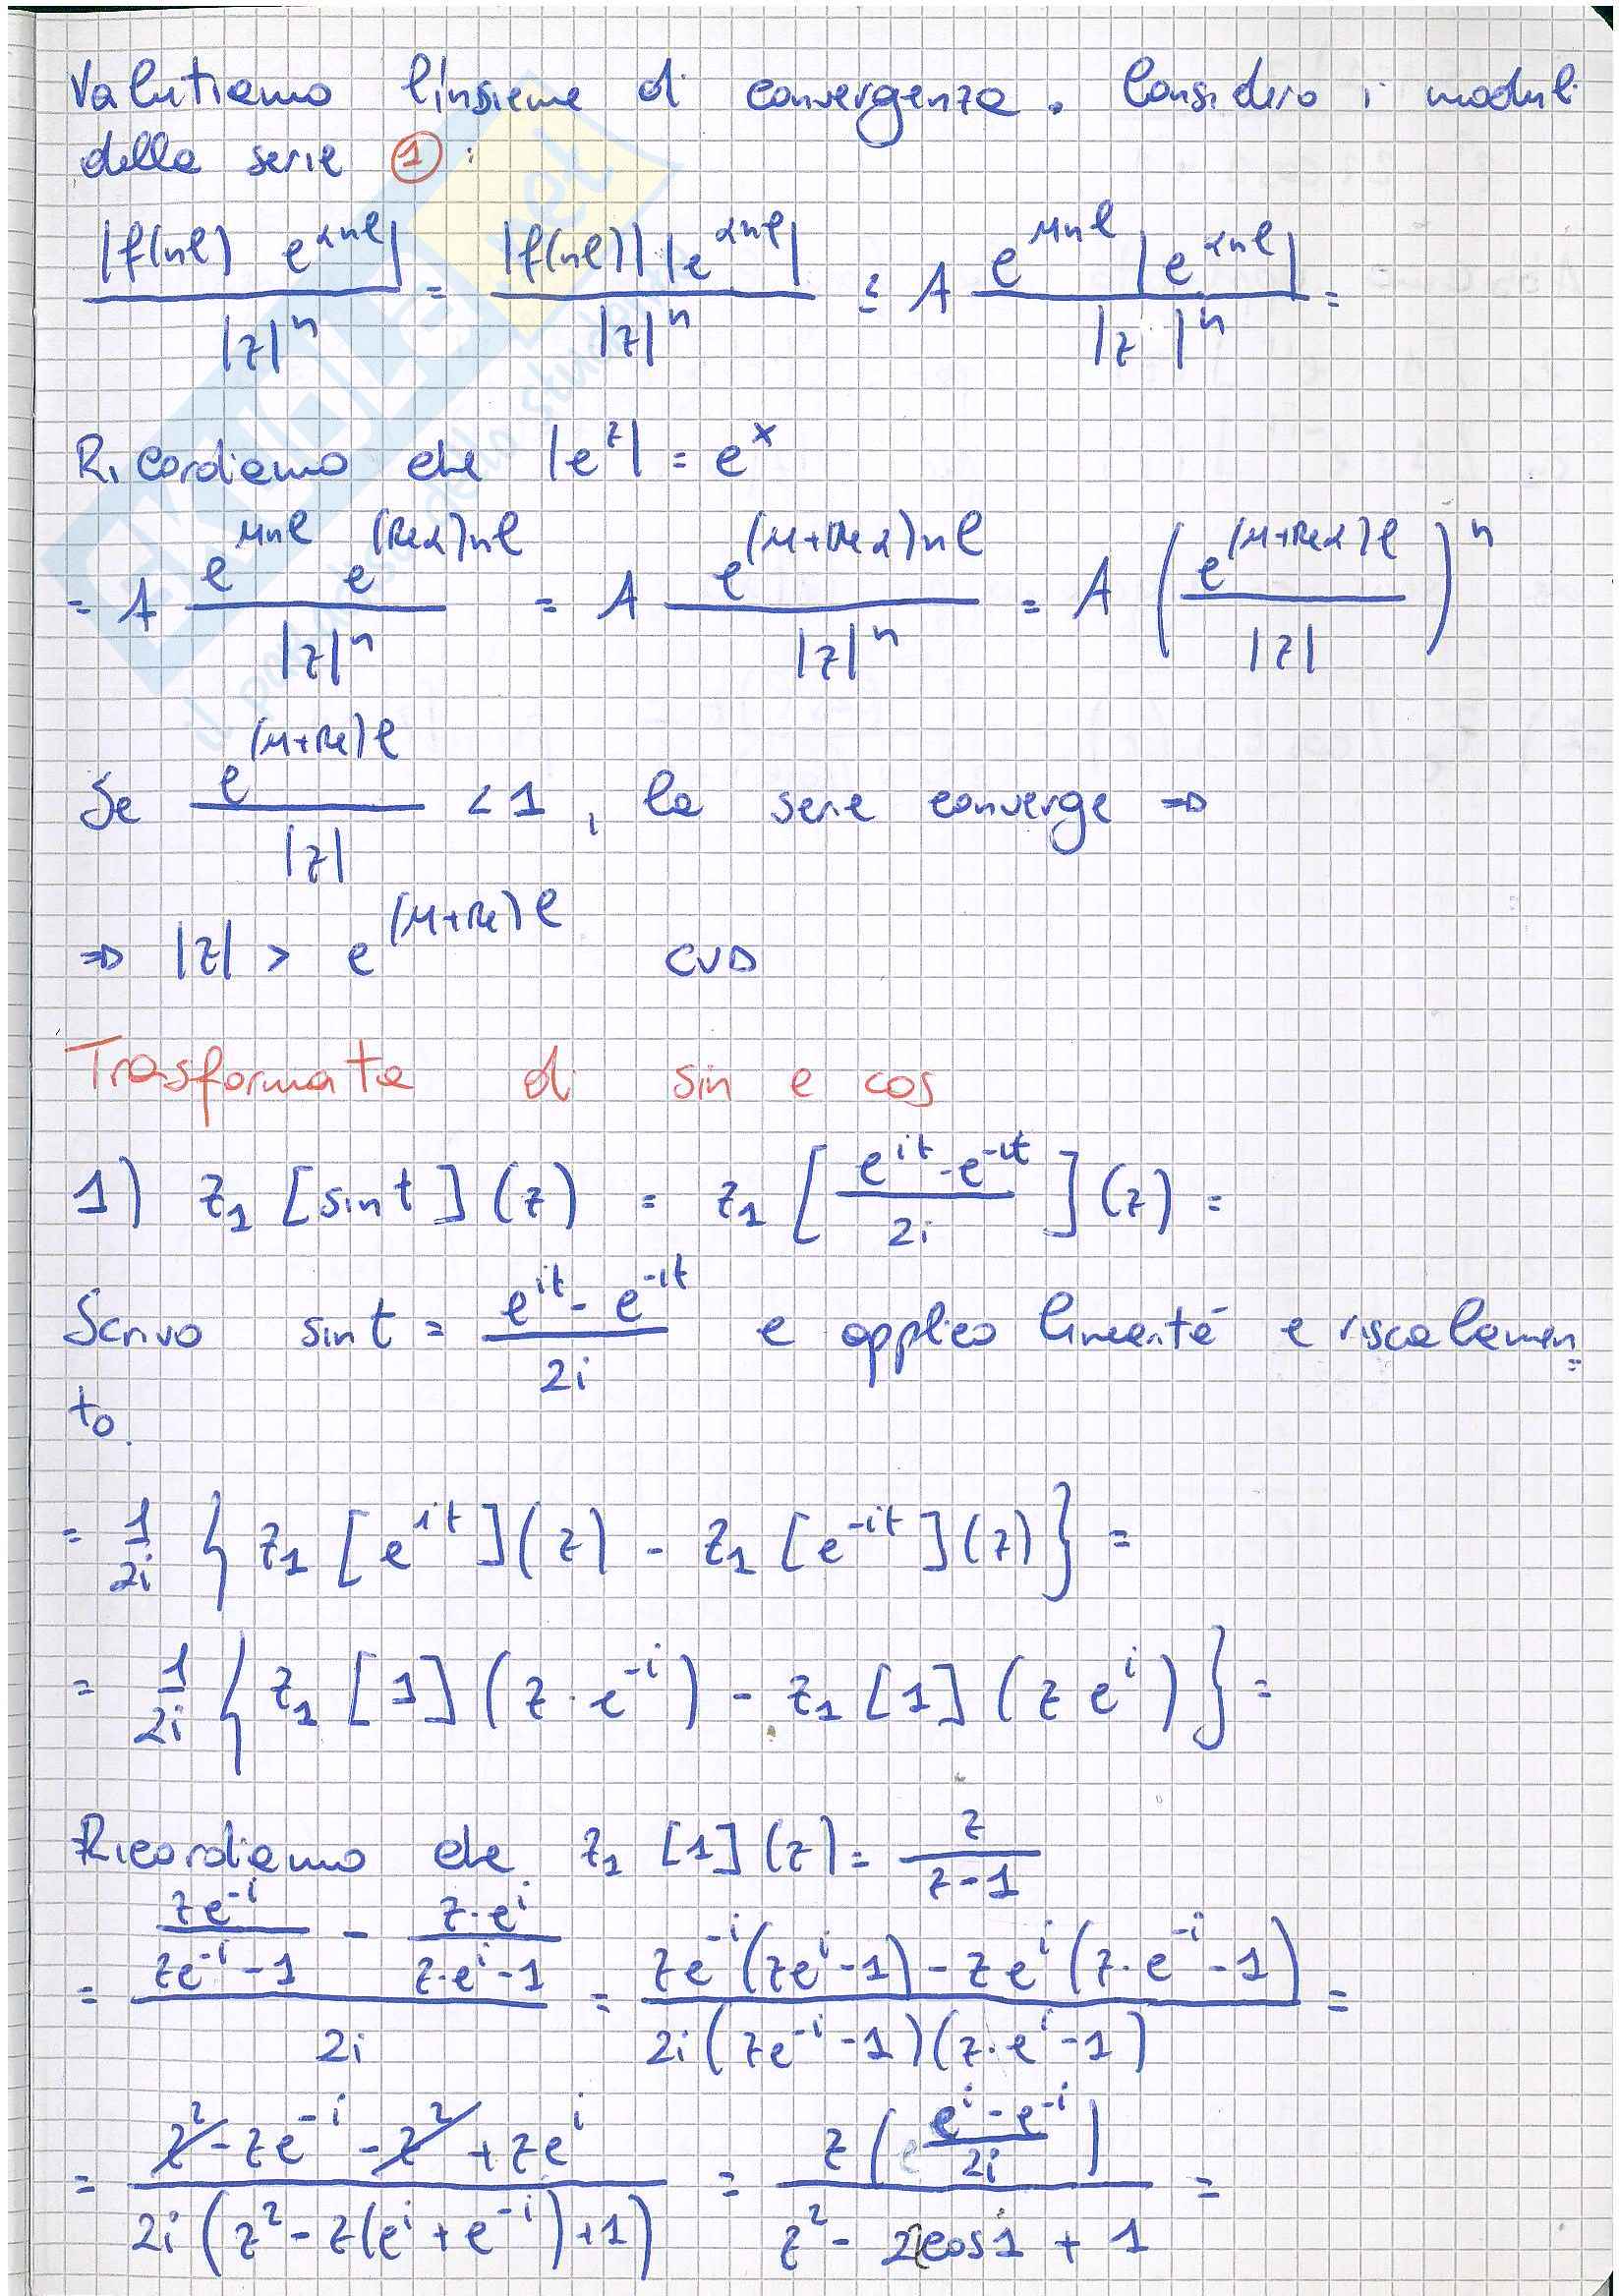 Valutiamo l'insieme di convergenza. Considero i moduli
della serie ① :
|f(nl) e^{αnl}| / |z|^n = |f(nl)| |e^{αnl}| / |z|^n ≤ A e^{μnl} |e^{αnl}| / |z|^n =
Ricordiamo che |e^z| = e^x
= A e^{μnl} e^{(Reα)nl} / |z|^n = A e^{(μ+Reα)nl} / |z|^n = A ( e^{(μ+Reα)l} / |z| )^n
Se e^{(μ+Re)l} / |z| < 1, la serie converge ⇒
⇒ |z| > e^{(μ+Re)l} CVD
Trasformata di sin e cos
1) z_1 [sin t] (z) = z_1 [ (e^{it} - e^{-it}) / 2i ] (z) =
Scrivo sin t = (e^{it} - e^{-it}) / 2i e applico linearità e riscalamen=
to.
= 1/2i { z_1 [e^{it}] (z) - z_1 [e^{-it}] (z) } =
= 1/2i { z_1 [1] (z · e^{-i}) - z_1 [1] (z e^{i}) } =
Ricordiamo che z_1 [1] (z) = z / (z-1)
= ( ze^{-i} / (ze^{-i} - 1) - z·e^{i} / (z·e^{i} - 1) ) / 2i = ( ze^{-i} (ze^{i} - 1) - ze^{i} (z·e^{-i} - 1) ) / ( 2i (ze^{-i} - 1) (z·e^{i} - 1) ) =
= ( z^2 - ze^{-i} - z^2 + ze^{i} ) / ( 2i ( z^2 - z(e^{i} + e^{-i}) + 1 ) ) = z ( (e^{i} - e^{-i}) / 2i ) / ( z^2 - 2zcos1 + 1 ) =